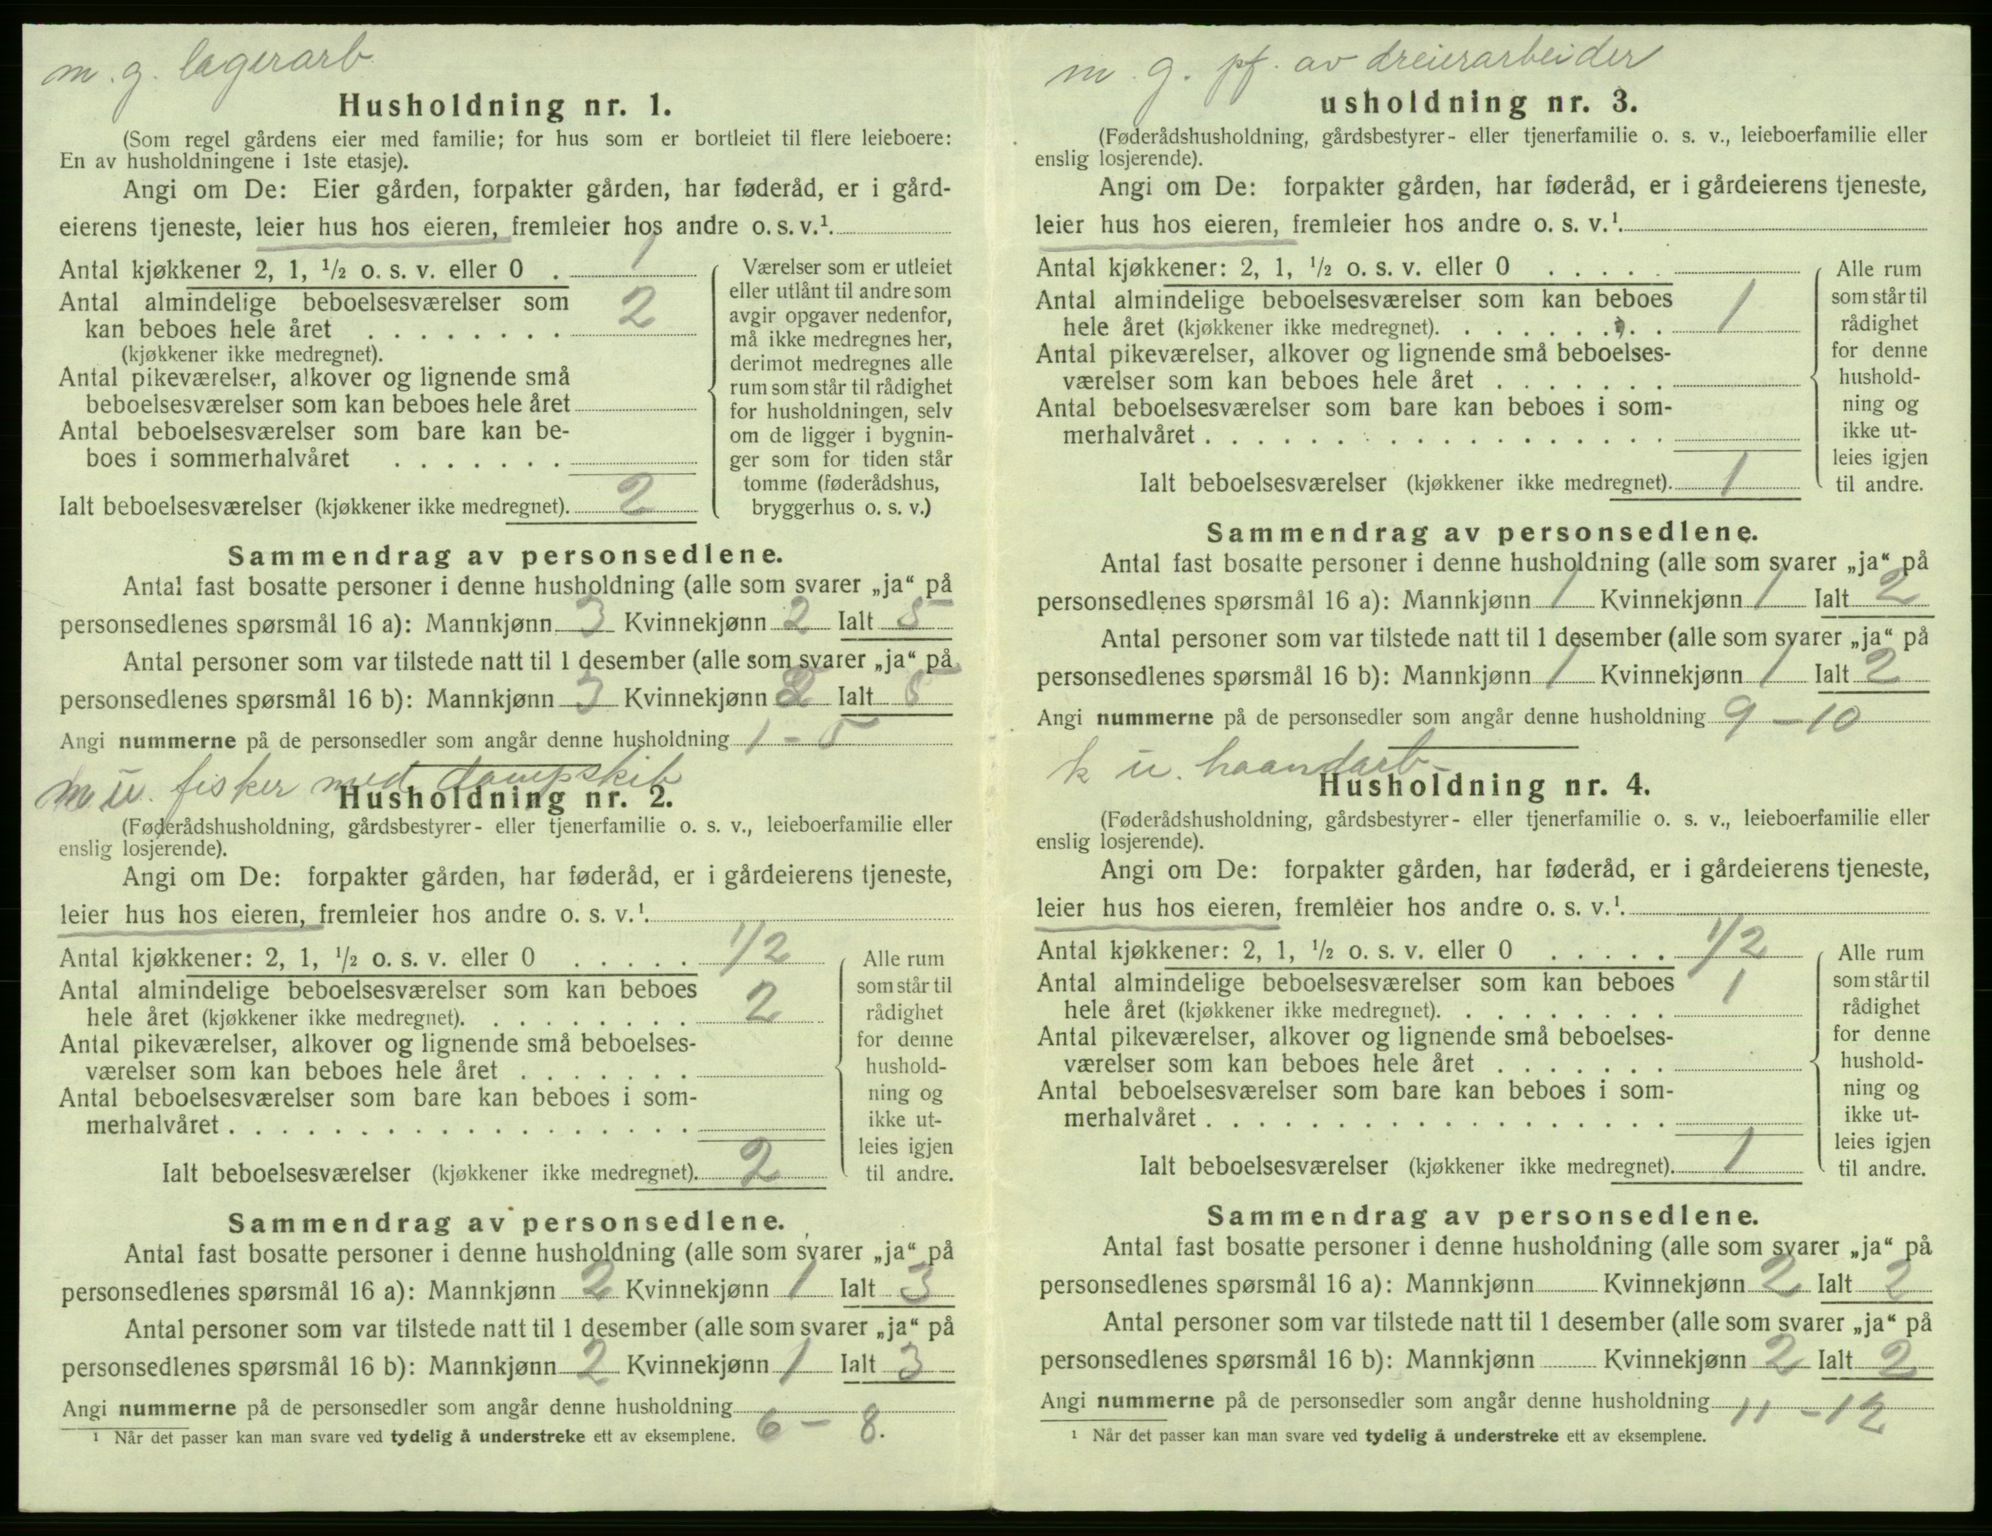 m. g. lagerarb.
Husholdning nr. 1.
(Som regel gårdens eier med familie; for hus som er bortleiet til flere leieboere:
En av husholdningene i 1ste etasje).
Angi om De: Eier gården, forpakter gården, har føderåd, er i gård-
eierens tjeneste, leier hus hos eieren, fremleier hos andre o. s. v.¹
Antal kjøkkener 2, 1, ½ o. s. v. eller 0 . 1
Antal almindelige beboelsesværelser som
kan beboes hele året . . . . . . . . 2
(kjøkkener ikke medregnet).
Antal pikeværelser, alkover og lignende små
beboelsesværelser som kan beboes hele året
Antal beboelsesværelser som bare kan be-
boes i sommerhalvåret . . . . . . .
Ialt beboelsesværelser (kjøkkener ikke medregnet). 2
Værelser som er utleiet
eller utlånt til andre som
avgir opgaver nedenfor,
må ikke medregnes her,
derimot medregnes alle
rum som står til rådighet
for husholdningen, selv
om de ligger i bygnin-
ger som for tiden står
tomme (føderådshus,
bryggerhus o. s. v.)
Sammendrag av personsedlene.
Antal fast bosatte personer i denne husholdning (alle som svarer „ja“ på
personsedlenes spørsmål 16 a): Mannkjønn 3 Kvinnekjønn 2 Ialt 5
Antal personer som var tilstede natt til 1 desember (alle som svarer „ja“ på
personsedlenes spørsmål 16 b): Mannkjønn 3 Kvinnekjønn 2 Ialt 5
Angi nummerne på de personsedler som angår denne husholdning 1 - 5
m u. fisker med dampskib
Husholdning nr. 2.
(Føderådshusholdning, gårdsbestyrer- eller tjenerfamilie o. s. v., leieboerfamilie eller
enslig losjerende).
Angi om De: forpakter gården, har føderåd, er i gårdeierens tjeneste,
leier hus hos eieren, fremleier hos andre o. s. v.¹
Antal kjøkkener: 2, 1, ½ o. s. v. eller 0 . . . . . 1/2
Antal almindelige beboelsesværelser som kan beboes
hele året (kjøkkener ikke medregnet). . . . . . . . . 2
Antal pikeværelser, alkover og lignende små beboelses-
værelser som kan beboes hele året . . . . . . .
Antal beboelsesværelser som bare kan beboes i som-
merhalvåret . . . . . . . . . . . . . . . . . .
Ialt beboelsesværelser (kjøkkener ikke medregnet). 2
Alle rum
som står til
rådighet
for denne
hushold-
ning og
ikke ut-
leies igjen
til andre.
Sammendrag av personsedlene.
Antal fast bosatte personer i denne husholdning (alle som svarer „ja“ på
personsedlenes spørsmål 16 a): Mannkjønn 2 Kvinnekjønn 1 Ialt 3
Antal personer som var tilstede natt til 1 desember (alle som svarer „ja“ på
personsedlenes spørsmål 16 b): Mannkjønn 2 Kvinnekjønn 1 Ialt 3
Angi nummerne på de personsedler som angår denne husholdning 6 - 8.
¹ Når det passer kan man svare ved tydelig å understreke ett av eksemplene.
m. g. pf. av dreierarbeider
usholdning nr. 3.
(Føderådshusholdning, gårdsbestyrer- eller tjenerfamilie o. s. v., leieboerfamilie eller
enslig losjerende).
Angi om De: forpakter gården, har føderåd, er i gårdeierens tjeneste,
leier hus hos eieren, fremleier hos andre o. s. v.¹
Antal kjøkkener: 2, 1, ½ o. s. v. eller 0 . . . . .
Antal almindelige beboelsesværelser som kan beboes
hele året (kjøkkener ikke medregnet). . . . . . . . . 1
Antal pikeværelser, alkover og lignende små beboelses-
værelser som kan beboes hele året . . . . . . .
Antal beboelsesværelser som bare kan beboes i som-
merhalvåret . . . . . . . . . . . . . . . . . .
Ialt beboelsesværelser (kjøkkener ikke medregnet). 1
Alle rum
som står til
rådighet
for denne
hushold-
ning og
ikke ut-
leies igjen
til andre.
Sammendrag av personsedlene.
Antal fast bosatte personer i denne husholdning (alle som svarer „ja“ på
personsedlenes spørsmål 16 a): Mannkjønn 1 Kvinnekjønn 1 Ialt 2
Antal personer som var tilstede natt til 1 desember (alle som svarer „ja“ på
personsedlenes spørsmål 16 b): Mannkjønn 1 Kvinnekjønn 1 Ialt 2
Angi nummerne på de personsedler som angår denne husholdning 9 - 10
k u. haandarb.
Husholdning nr. 4.
(Føderådshusholdning, gårdsbestyrer- eller tjenerfamilie o. s. v., leieboerfamilie eller
enslig losjerende).
Angi om De: forpakter gården, har føderåd, er i gårdeierens tjeneste,
leier hus hos eieren, fremleier hos andre o. s. v.¹
Antal kjøkkener: 2, 1, ½ o. s. v. eller 0 . . . . . 1/2
Antal almindelige beboelsesværelser som kan beboes
hele året (kjøkkener ikke medregnet). . . . . . . . . 1
Antal pikeværelser, alkover og lignende små beboelses-
værelser som kan beboes hele året . . . . . . .
Antal beboelsesværelser som bare kan beboes i som-
merhalvåret . . . . . . . . . . . . . . . . . .
Ialt beboelsesværelser (kjøkkener ikke medregnet). 1
Alle rum
som står til
rådighet
for denne
hushold-
ning og
ikke ut-
leies igjen
til andre.
Sammendrag av personsedlene.
Antal fast bosatte personer i denne husholdning (alle som svarer „ja“ på
personsedlenes spørsmål 16 a): Mannkjønn Kvinnekjønn 2 Ialt 2
Antal personer som var tilstede natt til 1 desember (alle som svarer „ja“ på
personsedlenes spørsmål 16 b): Mannkjønn Kvinnekjønn 2 Ialt 2
Angi nummerne på de personsedler som angår denne husholdning 11 - 12
¹ Når det passer kan man svare ved tydelig å understreke ett av eksemplene.